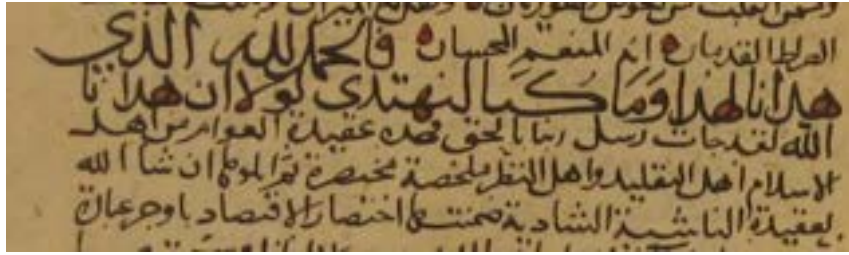 الصراط القدمان انه المنعم المحسان فالحمد لله الذي
هدانا لهذا وما كنا لنهتدي لولا ان هدانا
الله لقد جات رسل ربنا بالحق فهذه عقيدة العوام من اهل
الاسلام اهل التقليد واهل النظر ملخصة مختصرة ثم اتلوها ان شا الله
بعقيدة الناشية الشادية ضمنتها اختصار الاقتصاد باوجز عبارة